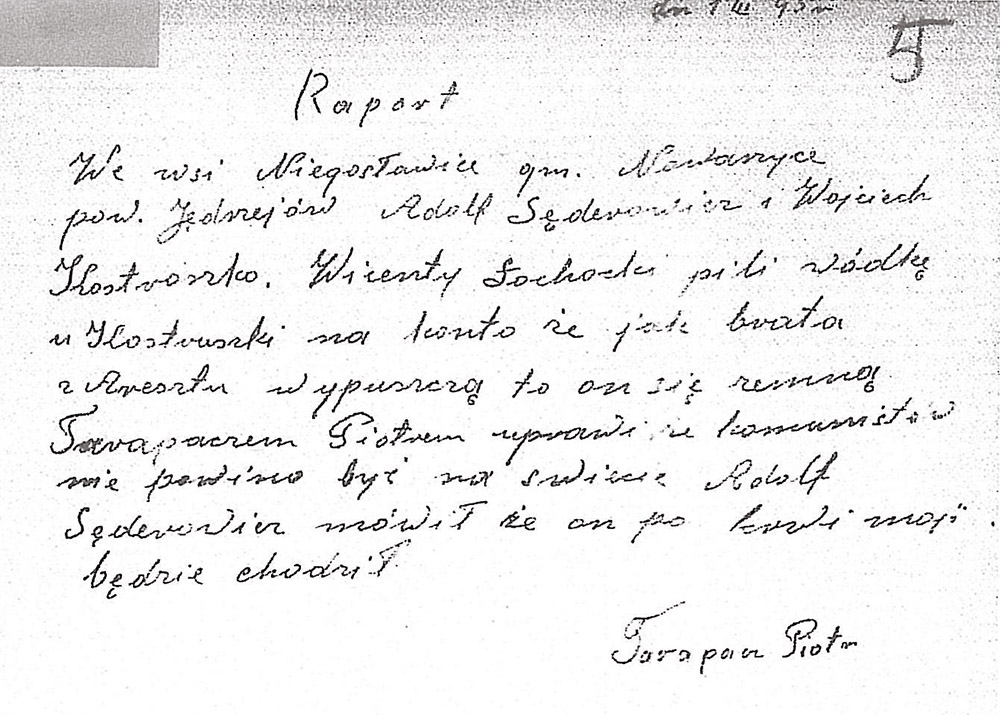 5
Raport
We wsi Niegosławice gm. Nawarzyce
pow. Jędrzejów Adolf Sęderowicz i Wojciech
Kostroszko. Wicenty Sochacki pili wódkę
u Kostruszki na konto że jak brata
z Aresztu wypuszczą to on się zemną
Tarapaczem Piotrem uprawi że komunistów
nie powino być na swiecie Adolf
Sęderowicz mówił że on po krwi moji
będzie chodził
Tarapacz Piotr